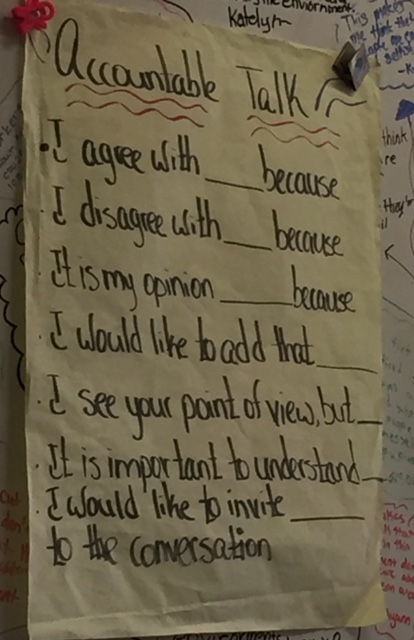 Katelyn
Accountable Talk
I agree with ____ because
I disagree with ____ because
It is my opinion _____ because
I would like to add that ____
I see your point of view, but __
It is important to understand __
I would like to invite _____
to the conversation
think
re